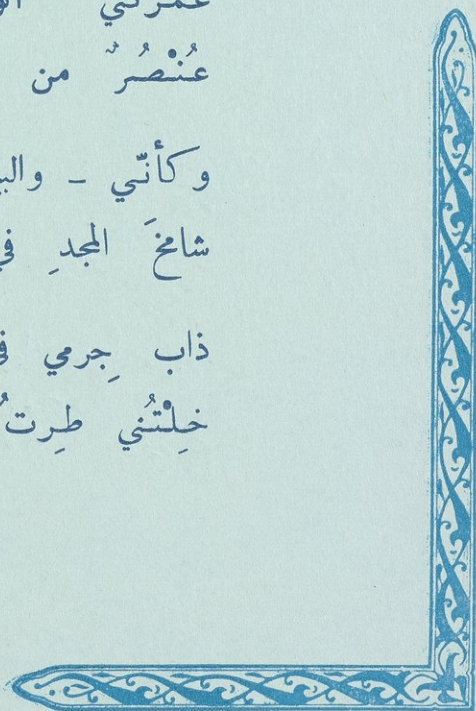 عُنْصُرٌ من
وكأنّي -
شامخَ المجدِ
ذاب جِرمي
خِلْتُني طِرتُ